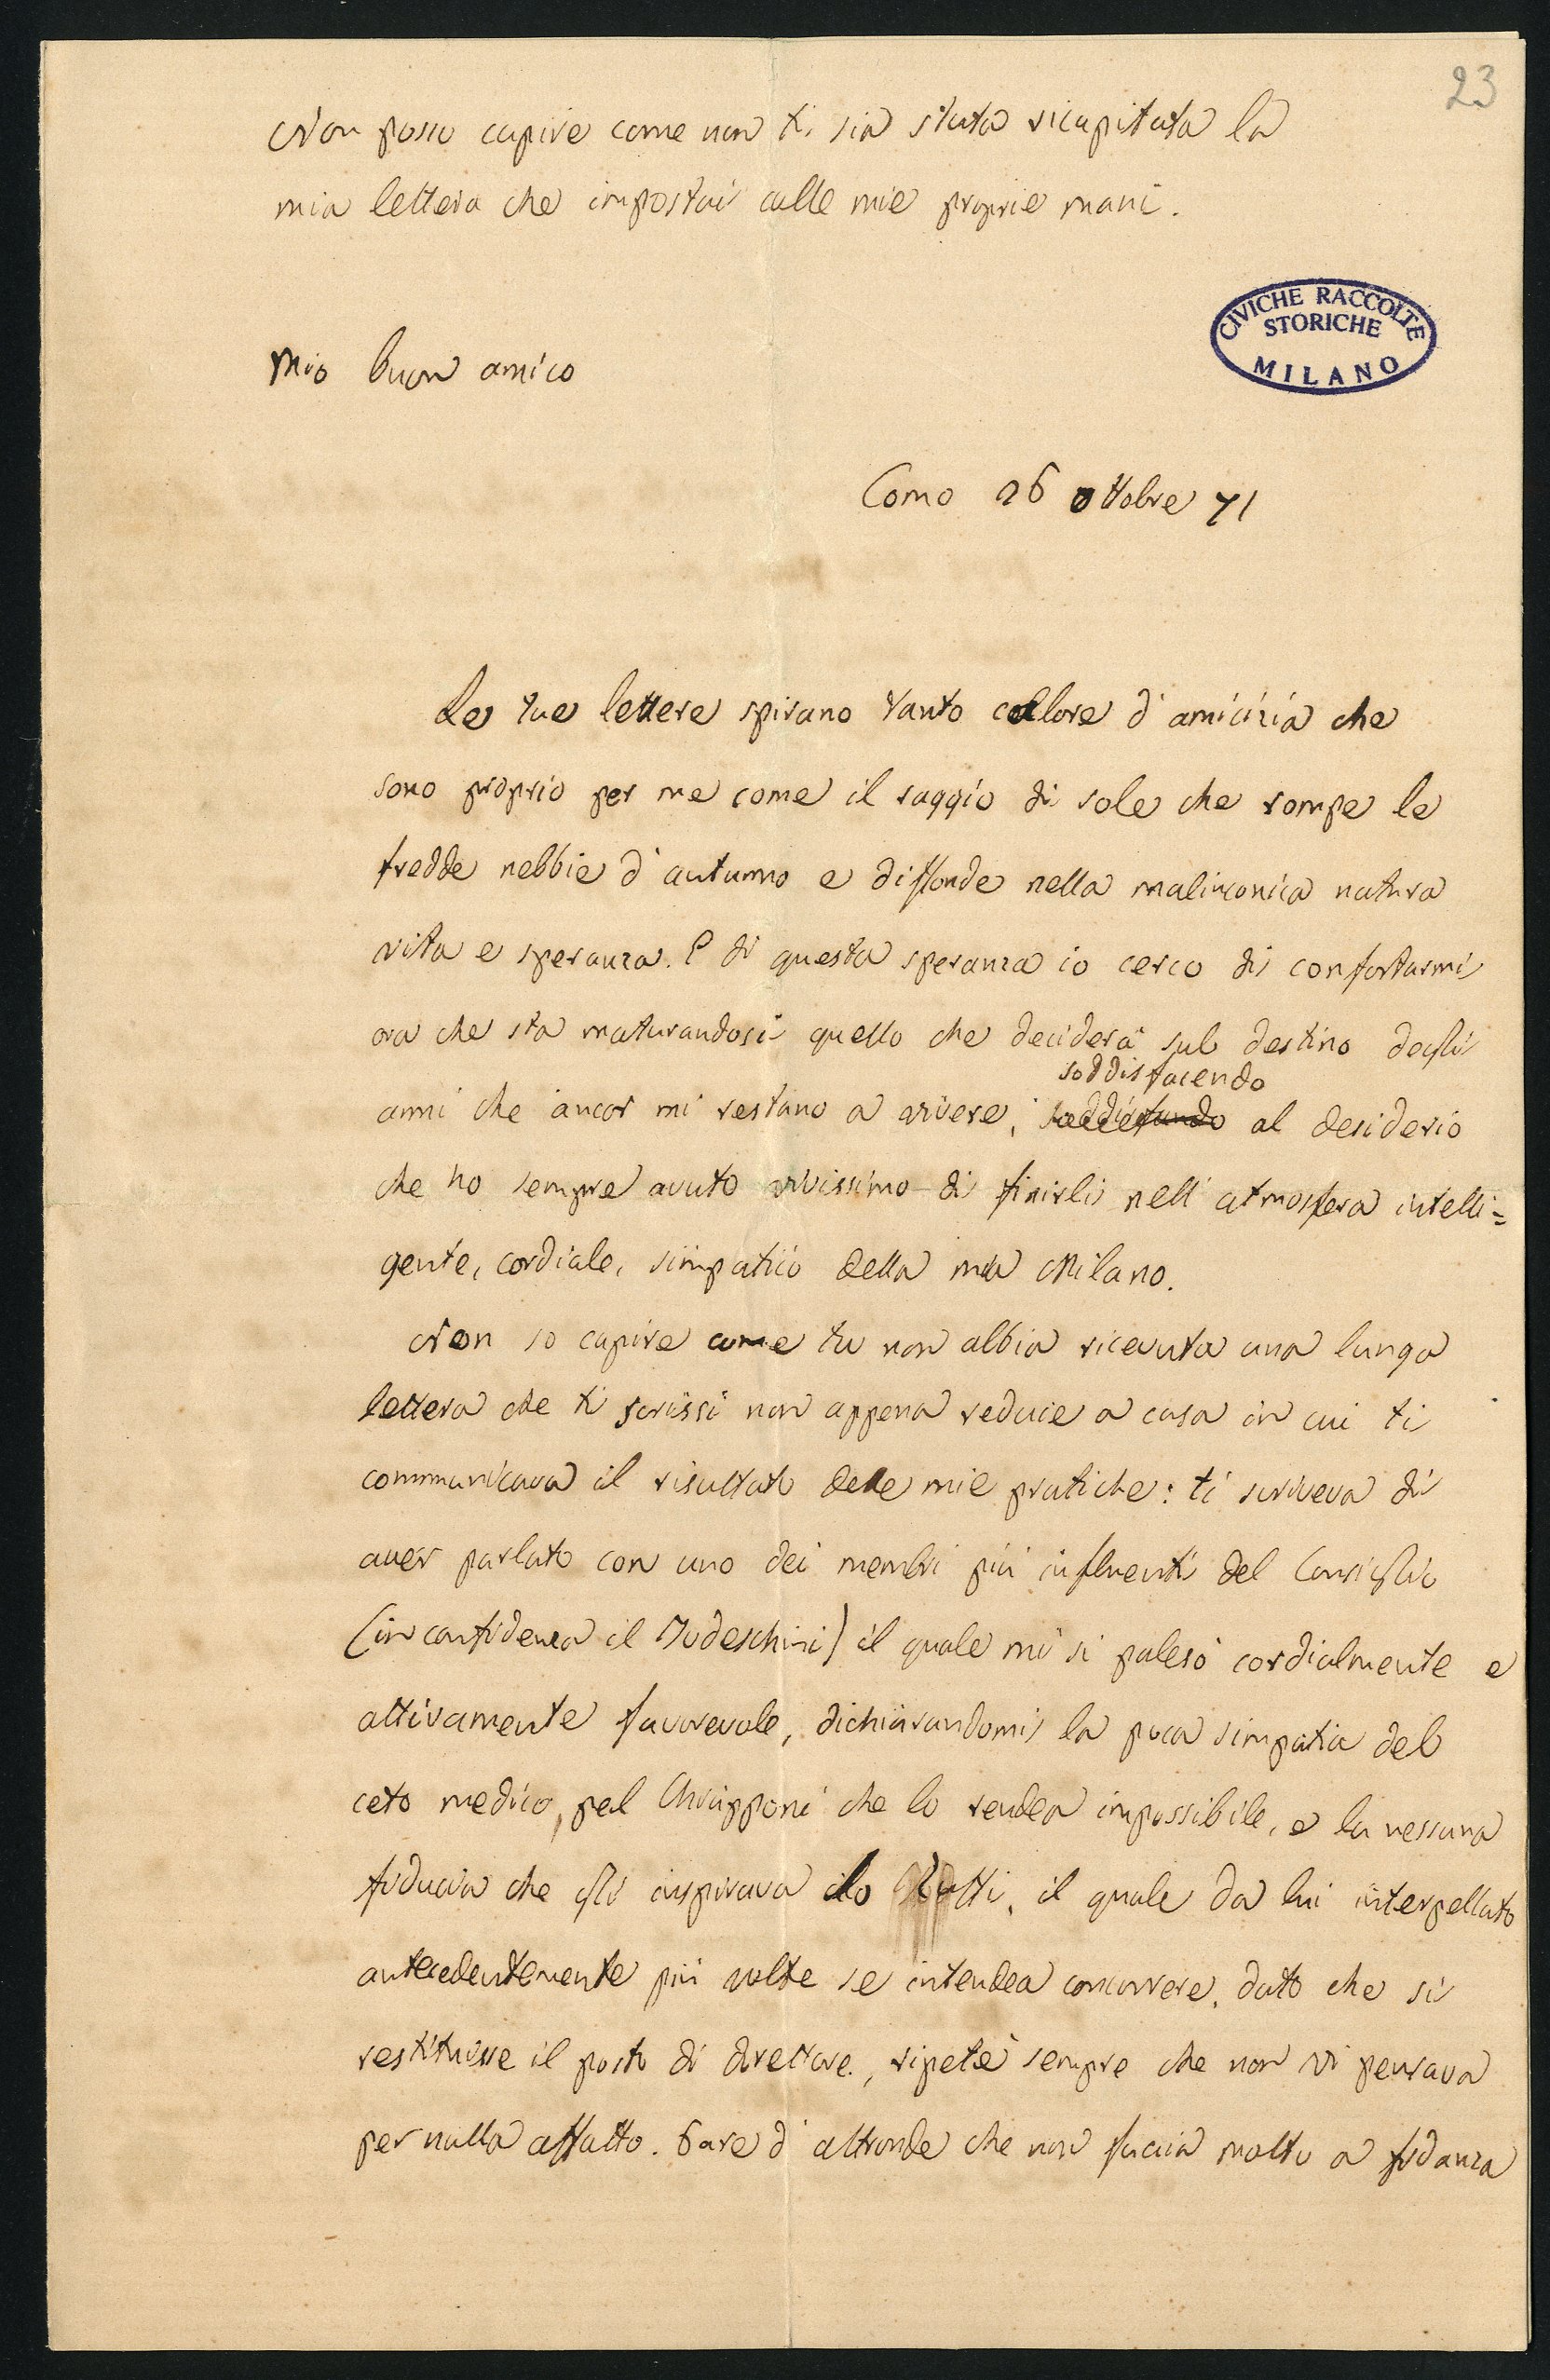 23
Non posso capire come non ti sia stata ricapitata la
mia lettera che impostai colle mie proprie mani.
CIVICHE RACCOLTE
STORICHE
MILANO
Mio buon amico
Como 26 ottobre 71
Le tue lettere spirano tanto calore d'amicizia che
sono proprio per me come il raggio di sole che rompe le
fredde nebbie d'autunno e diffonde nella malinconica natura
vita e speranza. E di questa speranza io cerco di confortarmi
ora che sta maturandosi quello che deciderà sul destino degli
soddisfacendo
anni che ancor mi restano a vivere, al desiderio
che ho sempre avuto vivissimo di finirli nell'atmosfera intelli=
gente, cordiale, simpatica della mia Milano.
Non so capire come tu non abbia ricevuta una lunga
lettera che ti scrissi non appena reduce a casa in cui ti
communicava il risultato delle mie pratiche: ti scriveva di
aver parlato con uno dei membri più influenti del Consiglio
(in confidenza il Todeschini) il quale mi si palesò cordialmente e
attivamente favorevole, dichiarandomi la poca simpatia del
ceto medico, pel Chiapponi che lo rendea impossibile, e la nessuna
fiducia che gli inspirava il quale da lui interpellato
antecedentemente più volte se intendea concorrere, dato che si
restituisse il posto di direttore, ripetè sempre che non vi pensava
per nulla affatto. Pare d'altronde che non faccia molto a fidanza